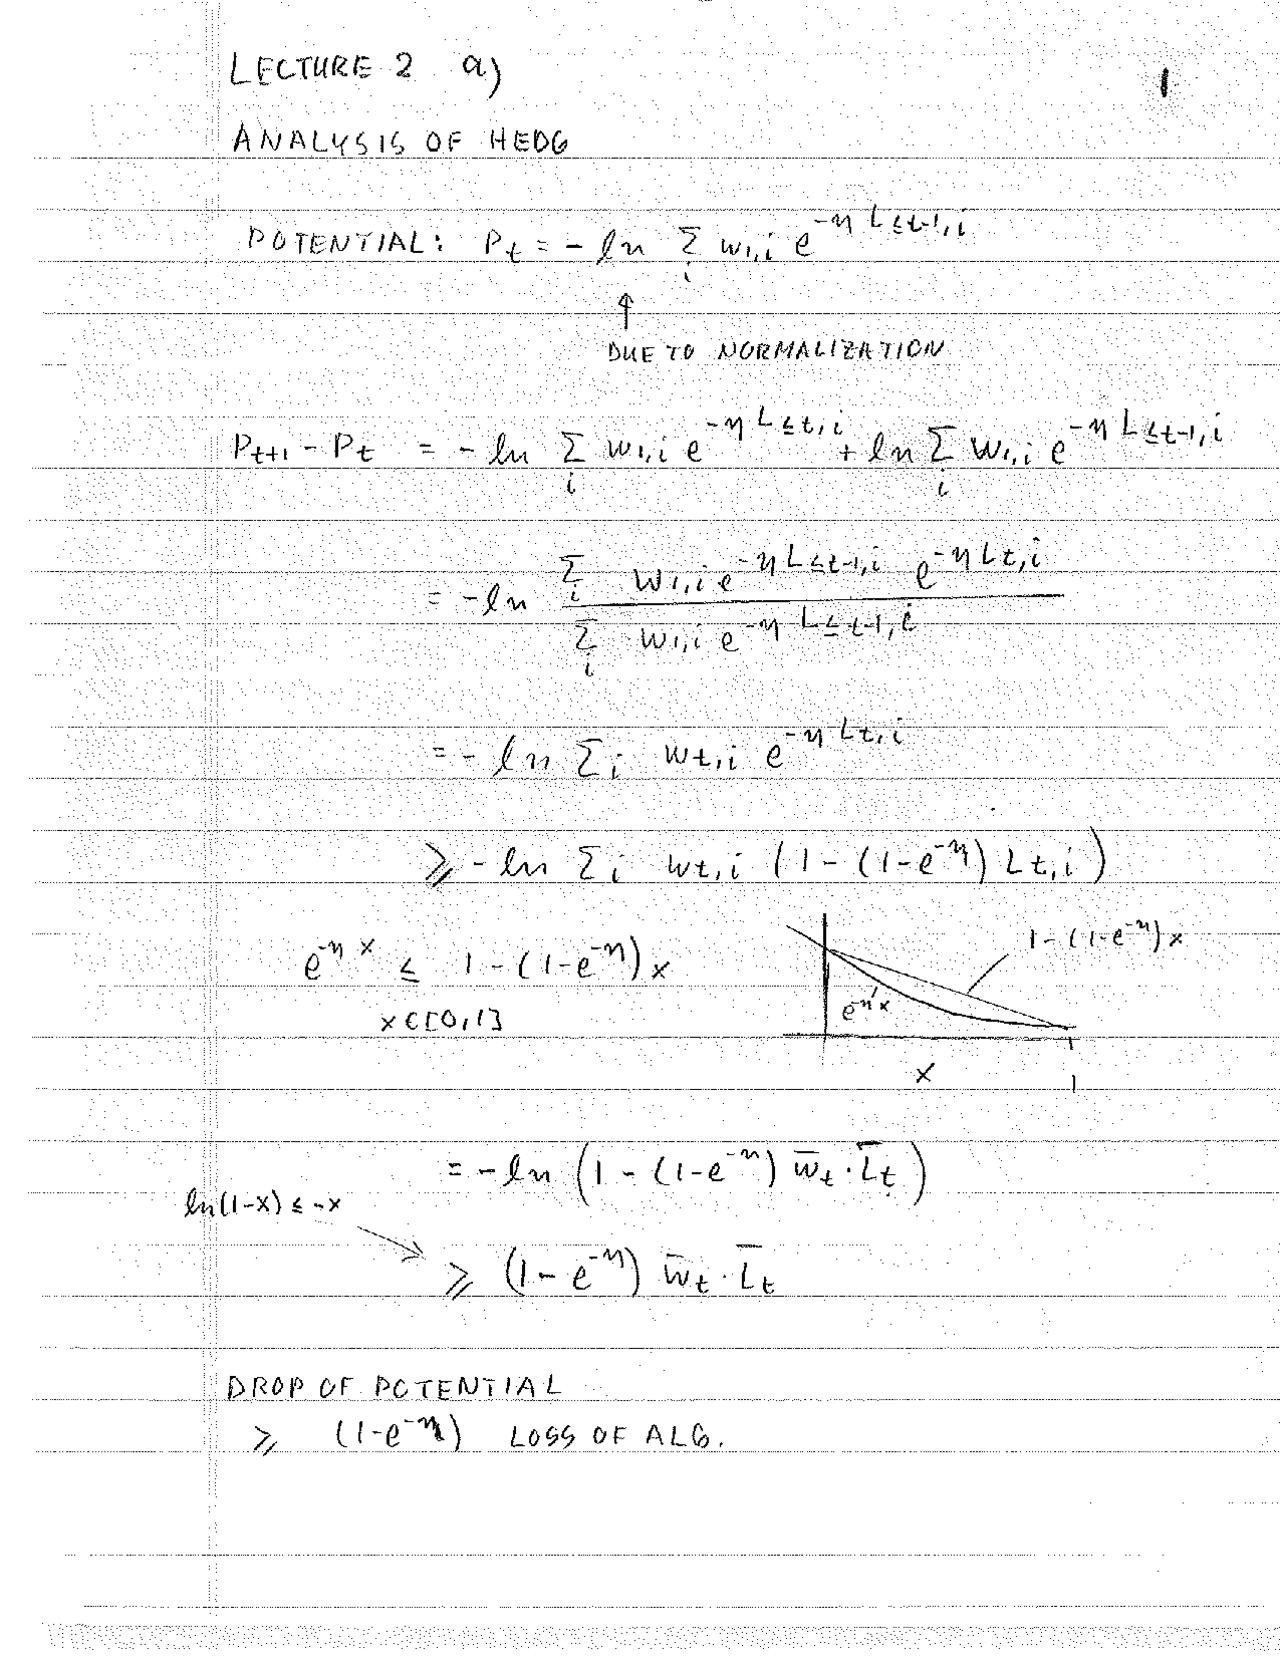 LECTURE 2 a)
1
ANALYSIS OF HEDG
POTENTIAL: P_t = - ln Σ_i w_{1,i} e^{-η L_{≤t-1,i}}
↑
DUE TO NORMALIZATION
P_{t+1} - P_t = - ln Σ_i w_{1,i} e^{-η L_{≤t,i}} + ln Σ_i w_{1,i} e^{-η L_{≤t-1,i}}
= -ln \frac{Σ_i w_{1,i} e^{-η L_{≤t-1,i}} e^{-η L_{t,i}}}{Σ_i w_{1,i} e^{-η L_{≤t-1,i}}}
= - ln Σ_i w_{t,i} e^{-η L_{t,i}}
≥ - ln Σ_i w_{t,i} (1 - (1-e^{-η}) L_{t,i})
e^{-η x} ≤ 1 - (1-e^{-η}) x
x ∈ [0,1]
1 - (1-e^{-η}) x
e^{-η x}
x
1
= - ln (1 - (1-e^{-η}) \bar{w}_t · \bar{L}_t)
ln(1-x) ≤ -x
≥ (1 - e^{-η}) \bar{w}_t · \bar{L}_t
DROP OF POTENTIAL
≥ (1-e^{-η}) LOSS OF ALG.